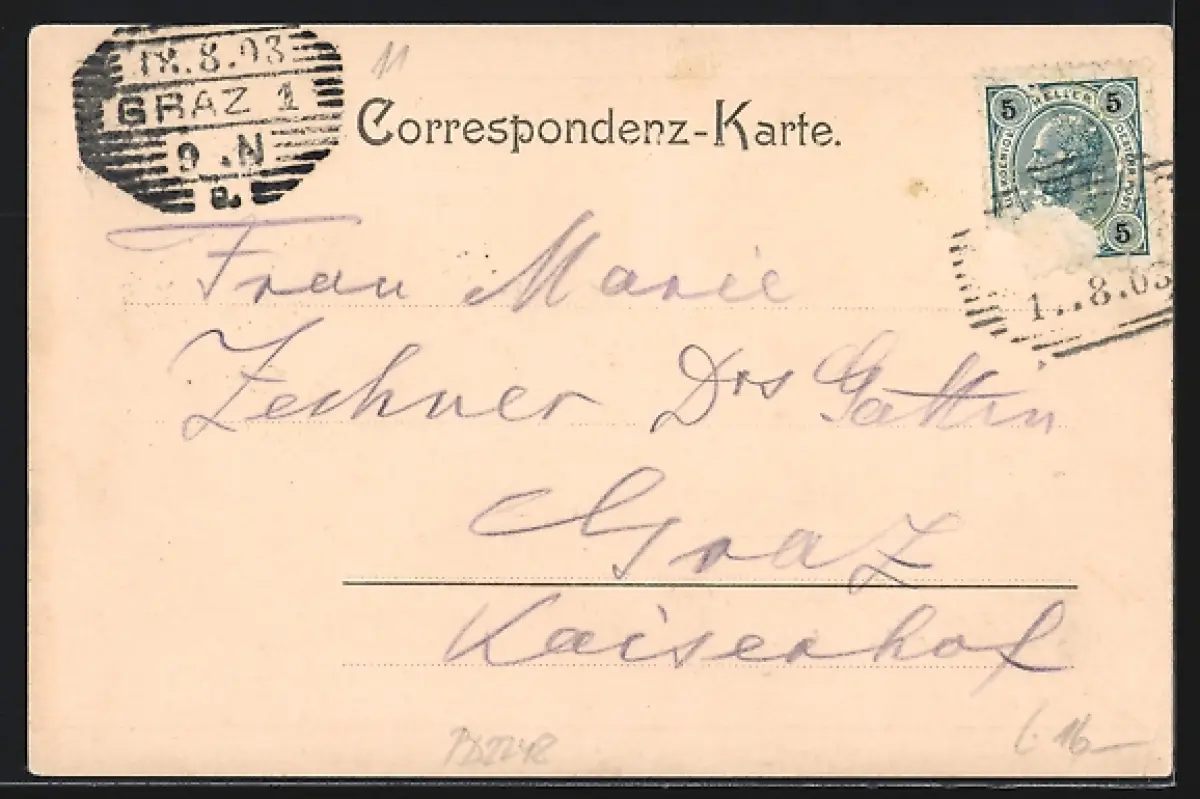 18.8.03
GRAZ 1
9 . N
a.
11
Correspondenz-Karte.
5 HELLER 5
OESTERR. POST
5
1..8.03
Frau Marie
Zechner Drs Gattin
Graz
Kaiserhof
16-